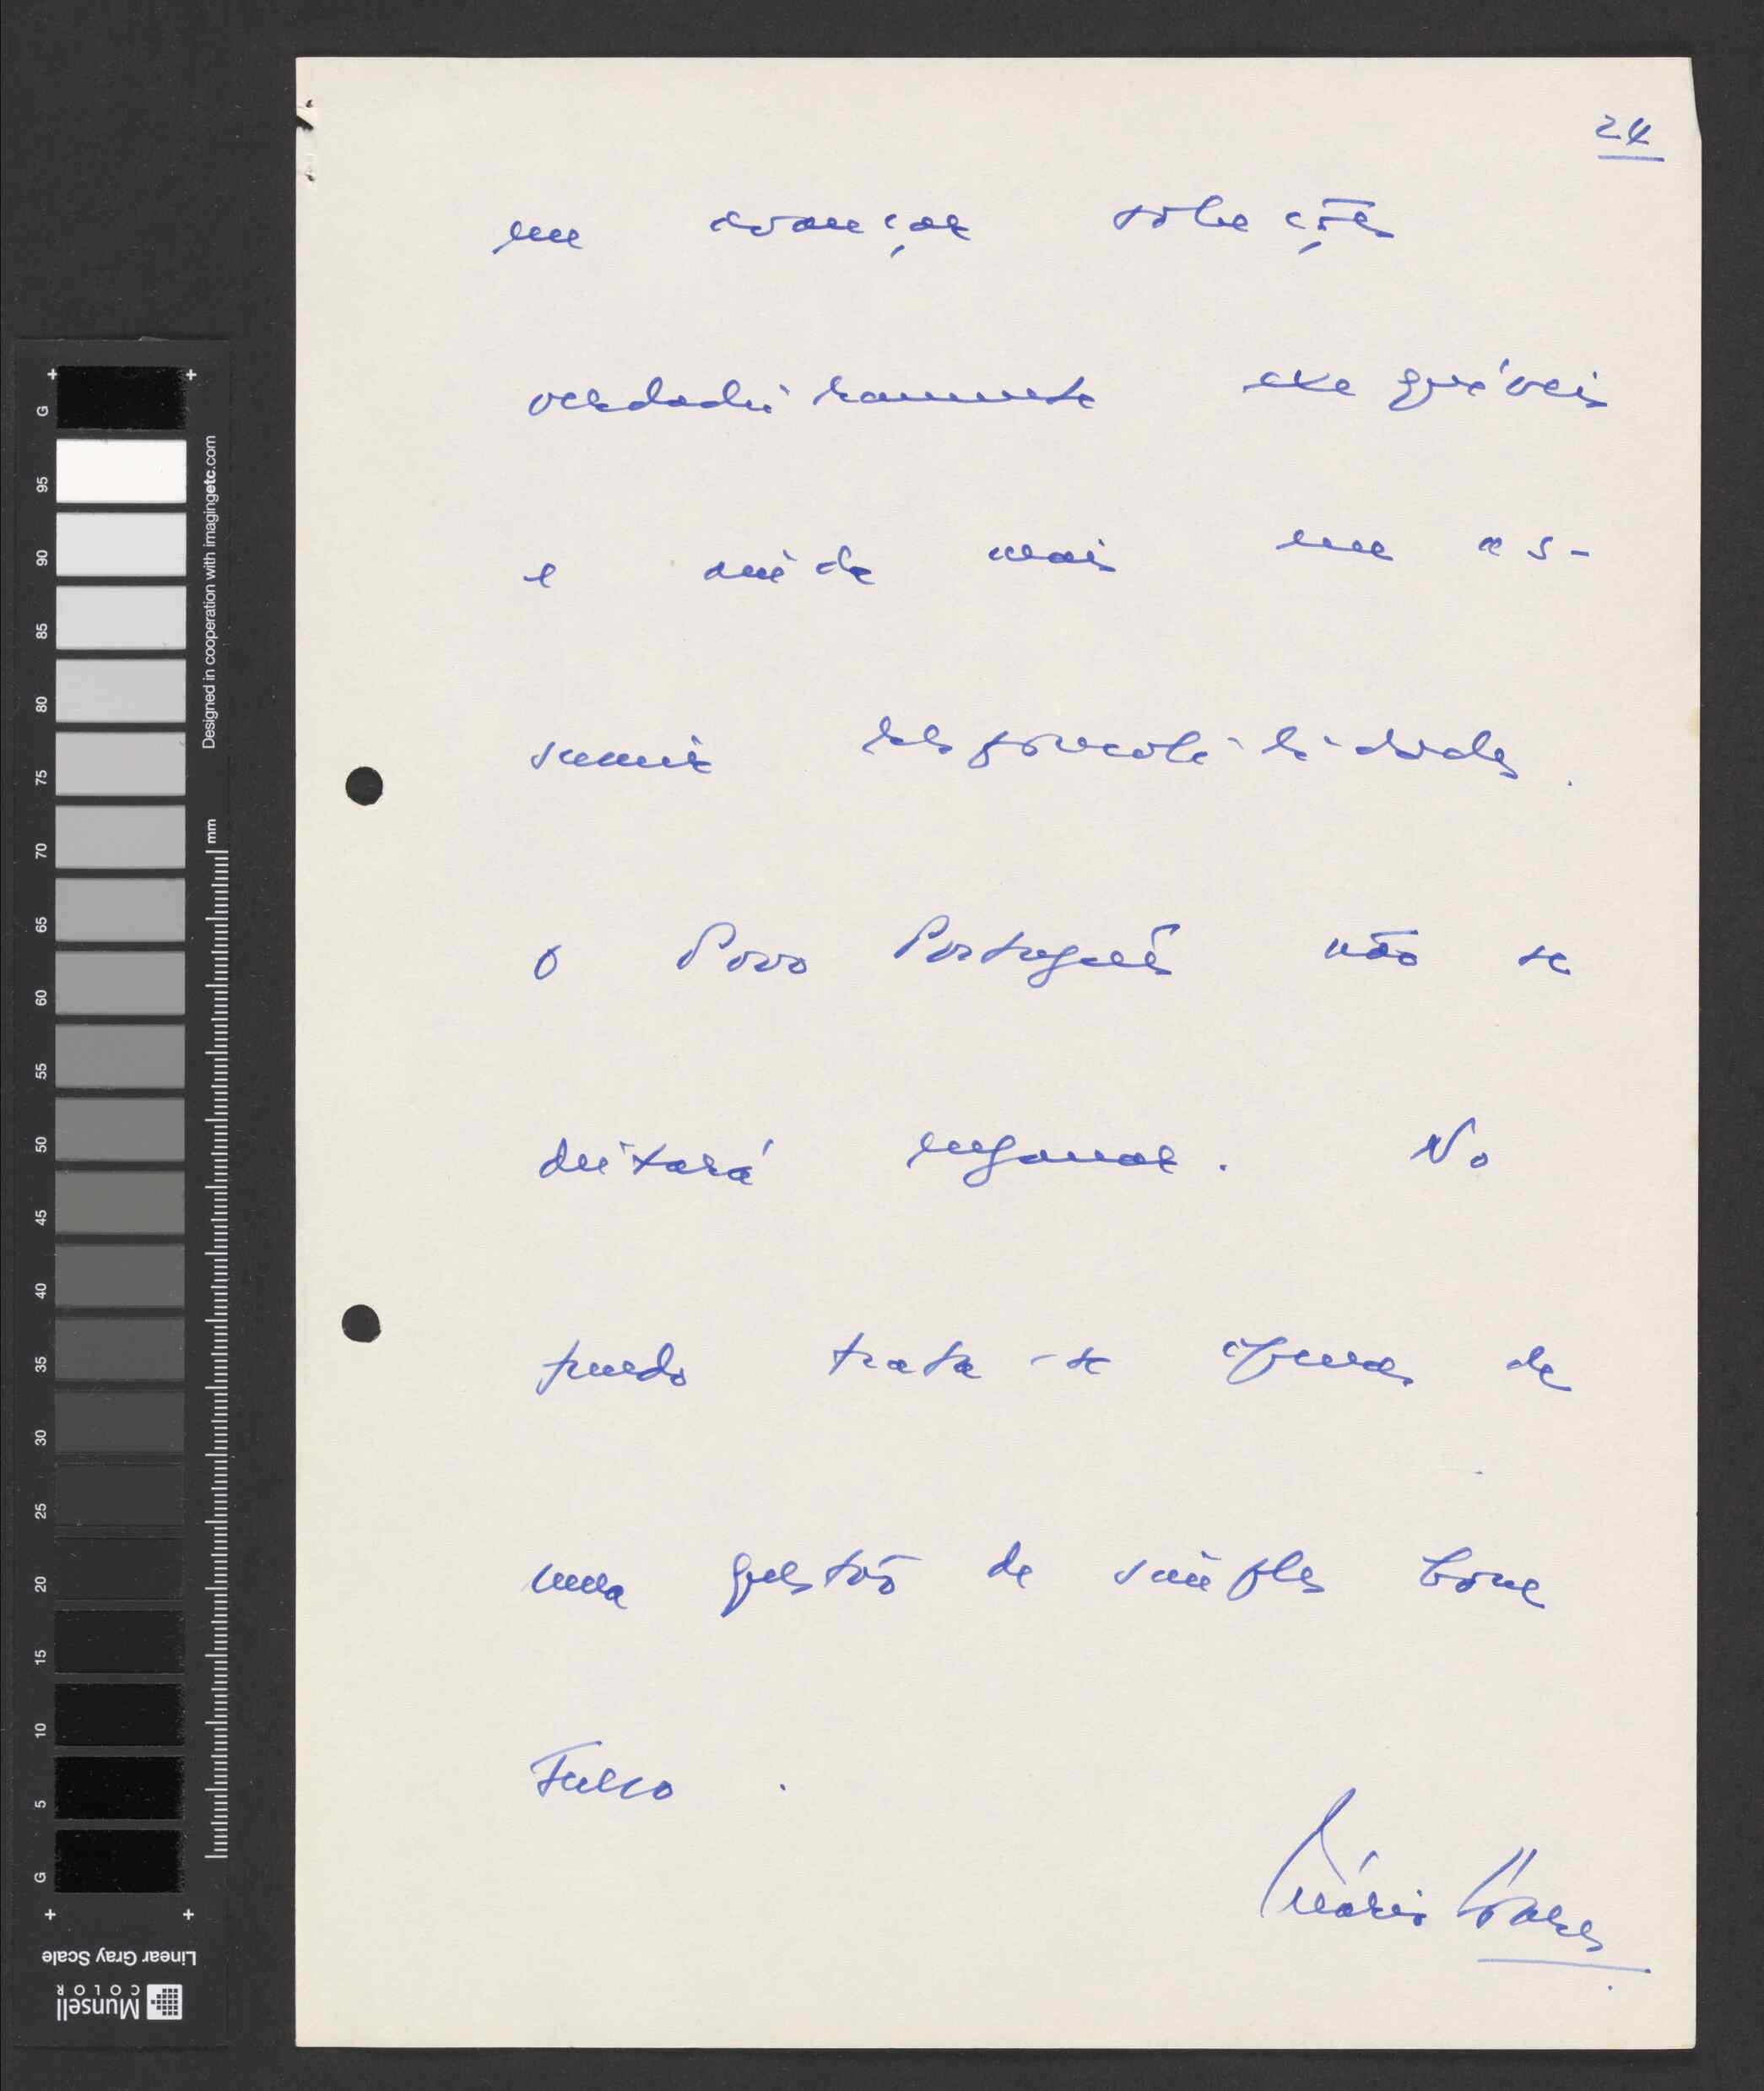 24
em avançar soluções
verdadeiramente exequíveis
e ainda mais em as-
sumir responsabilidades.
o Povo Português não se
deixará enganar. No
fundo trata-se apenas de
uma questão de simples bom
senso.
Mário Soares
G 95 90 85 80 75 70 65 60 55 50 45 40 35 30 25 20 15 10 5 G
Designed in cooperation with imagingetc.com
mm
Linear Gray Scale
Munsell
COLOR